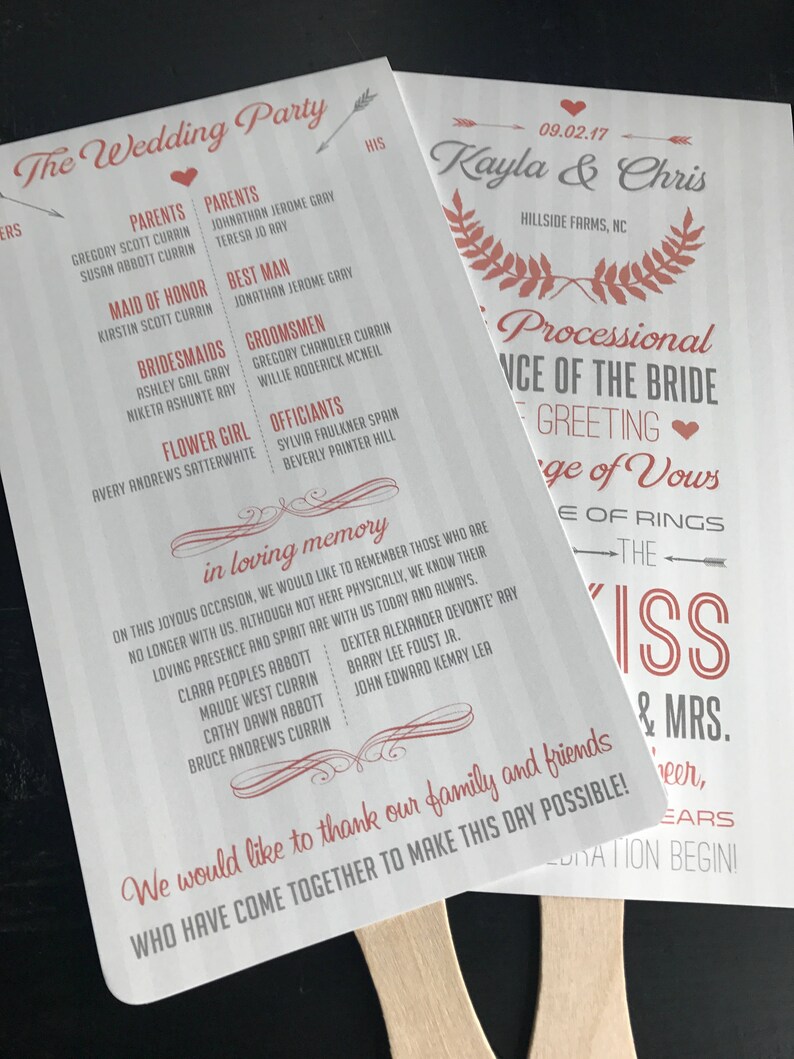 The Wedding Party
ERS
HIS
PARENTS
GREGORY SCOTT CURRIN
SUSAN ABBOTT CURRIN
MAID OF HONOR
KIRSTIN SCOTT CURRIN
BRIDESMAIDS
ASHLEY GAIL GRAY
NIKETA ASHUNTE RAY
FLOWER GIRL
AVERY ANDREWS SATTERWHITE
PARENTS
JOHNATHAN JEROME GRAY
TERESA JO RAY
BEST MAN
JONATHAN JEROME GRAY
GROOMSMEN
GREGORY CHANDLER CURRIN
WILLIE RODERICK MCNEIL
OFFICIANTS
SYLVIA FAULKNER SPAIN
BEVERLY PAINTER HILL
in loving memory
ON THIS JOYOUS OCCASION, WE WOULD LIKE TO REMEMBER THOSE WHO ARE
NO LONGER WITH US. ALTHOUGH NOT HERE PHYSICALLY, WE KNOW THEIR
LOVING PRESENCE AND SPIRIT ARE WITH US TODAY AND ALWAYS.
CLARA PEOPLES ABBOTT
MAUDE WEST CURRIN
CATHY DAWN ABBOTT
BRUCE ANDREWS CURRIN
DEXTER ALEXANDER DEVONTE' RAY
BARRY LEE FOUST JR.
JOHN EDWARD KEMRY LEA
We would like to thank our family and friends
WHO HAVE COME TOGETHER TO MAKE THIS DAY POSSIBLE!
09.02.17
Kayla & Chris
HILLSIDE FARMS, NC
Processional
NCE OF THE BRIDE
GREETING
ge of Vows
E OF RINGS
THE
KISS
& MRS.
heer,
EARS
BRATION BEGIN!